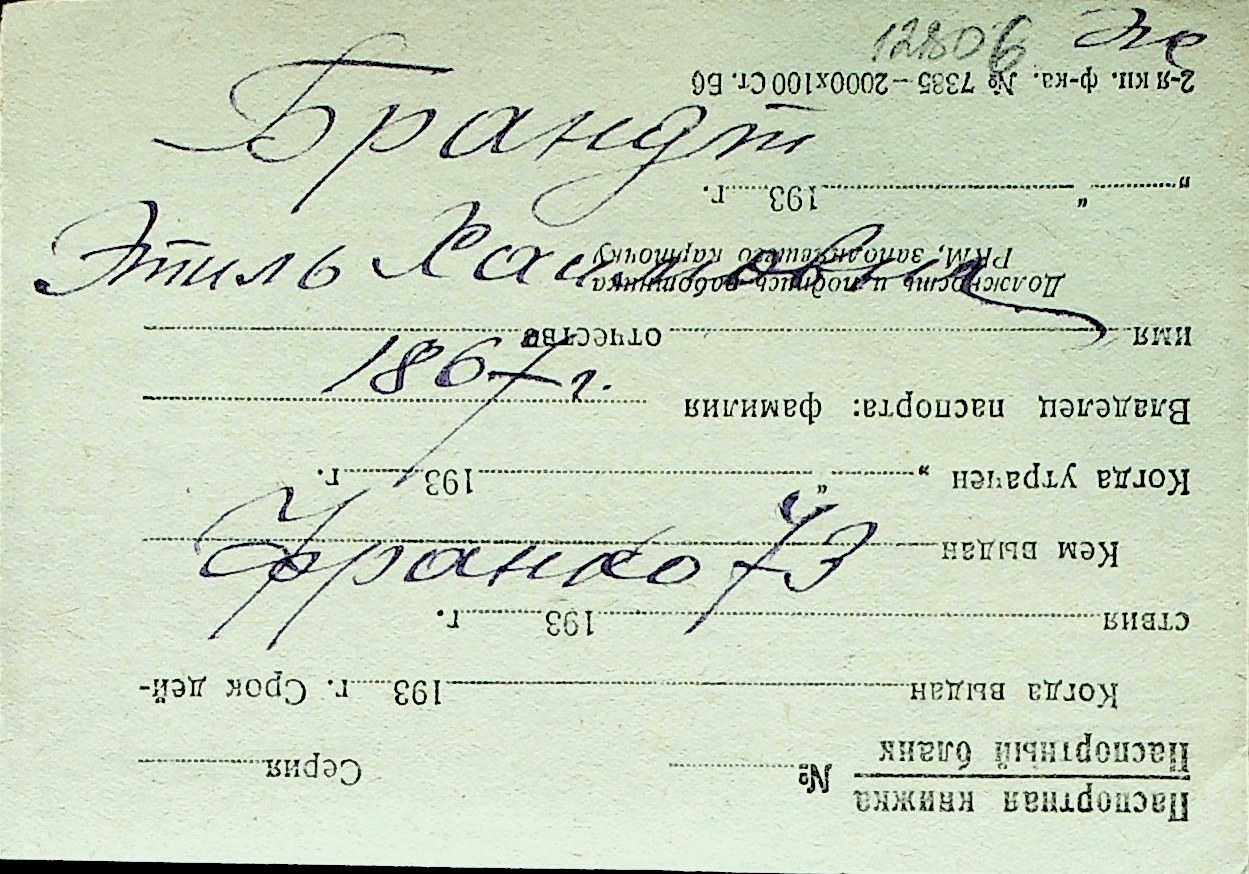 12806
Брандт
Этиль Хаимовна
1867 г.
Франко 73
Паспортная книжка
Паспортный бланк № Серия
Когда выдан 193 г. Срок дей-
ствия 193 г.
Кем выдан
Когда утрачен „ “ 193 г.
Владелец паспорта: фамилия
имя отчество
Должность и подпись работника
РКМ, заполнявшего карточку
„ “ 193 г.
2-я кн. ф-ка. № 7385—2000х100 Ст. Бб